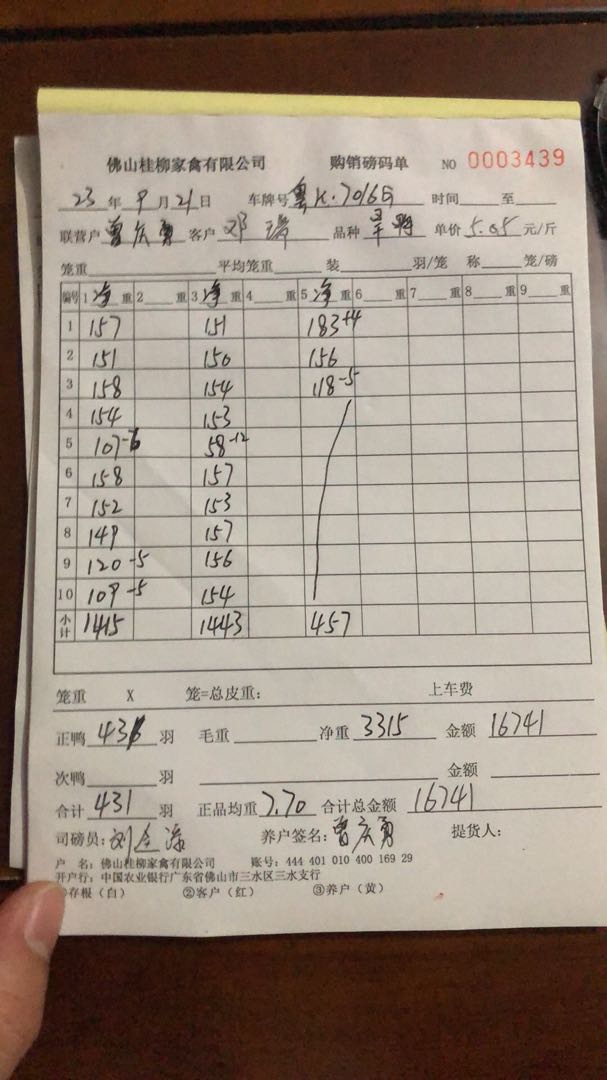 佛山桂柳家禽有限公司 购销磅码单 NO 0003439
23 年 9 月 21 日 车牌号 粤K·7016 时间 至
联营户 曾庆勇 客户 邓 品种 单价 5.05 元/斤
笼重 平均笼重 装 羽/笼 称 笼/磅
编号 1 净 重 2 重 3 净 重 4 重 5 净 重 6 重 7 重 8 重 9 重
1 157 151 183+4
2 151 150 156
3 158 154 118-5
4 154 153
5 107-6 58-12
6 158 157
7 152 153
8 149 157
9 120-5 156
10 109-5 154
小计 1415 1443 457
笼重 X 笼=总皮重: 上车费
正鸭 431 羽 毛重 净重 3315 金额 16741
次鸭 羽 金额
合计 431 羽 正品均重 7.70 合计总金额 16741
司磅员: 刘 养户签名: 曾庆勇 提货人:
户 名: 佛山桂柳家禽有限公司 账号: 444 401 010 400 169 29
开户行: 中国农业银行广东省佛山市三水区三水支行
①存根(白) ②客户(红) ③养户(黄)